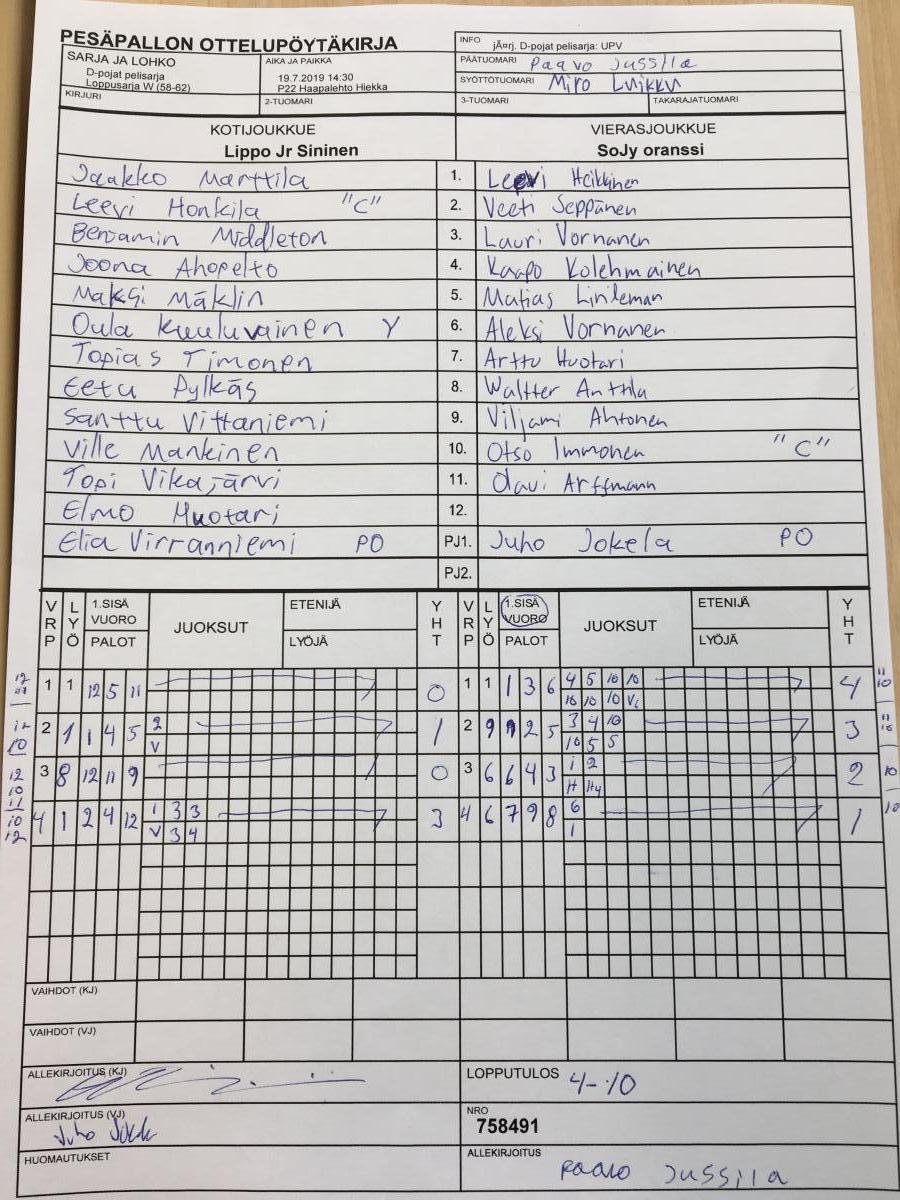 PESÄPALLON OTTELUPÖYTÄKIRJA
INFO jÃ¤rj. D-pojat pelisarja: UPV
SARJA JA LOHKO
D-pojat pelisarja
Loppusarja W (58-62)
AIKA JA PAIKKA
19.7.2019 14:30
P22 Haapalehto Hiekka
PÄÄTUOMARI Paavo Jussila
SYÖTTÖTUOMARI Miro Luikku
KIRJURI
2-TUOMARI
3-TUOMARI
TAKARAJATUOMARI
KOTIJOUKKUE
Lippo Jr Sininen
VIERASJOUKKUE
SoJy oranssi
Jaakko Marttila 1. Leevi Heikkinen
Leevi Honkila "C" 2. Veeti Seppänen
Benjamin Middleton 3. Lauri Vornanen
Joona Ahopelto 4. Kaapo Kolehmainen
Maksi Mäklin 5. Matias
Oula Kuuluvainen Y 6. Aleksi Vornanen
Topias Timonen 7. Arttu Huotari
Eetu Pylkäs 8. Waltter Anttila
Santtu Vittaniemi 9. Viljami Ahtonen
Ville Mankinen 10. Otso Immonen "C"
Topi Vikajärvi 11. Olavi Arffmann
Elmo Huotari 12.
Elia Virranniemi PO PJ1. Juho Jokela PO
PJ2.
VRP LYÖ 1.SISÄ VUORO PALOT JUOKSUT ETENIJÄ LYÖJÄ YHT VRP LYÖ 1.SISÄ VUORO PALOT JUOKSUT ETENIJÄ LYÖJÄ YHT
1 1 12 5 11 0 1 1 1 3 6 4 5 10 10 4
10 10 10
2 1 1 4 5 2 1 2 9 9 2 5 3 4 10 3
V 10 5 5
3 8 12 11 9 0 3 6 6 4 3 1 2 2
4 1 2 4 12 1 3 3 3 4 6 7 9 8 6 1
V 3 4 1
VAIHDOT (KJ)
VAIHDOT (VJ)
ALLEKIRJOITUS (KJ)
LOPPUTULOS 4-10
ALLEKIRJOITUS (VJ)
Juho
NRO
758491
HUOMAUTUKSET
ALLEKIRJOITUS
Paavo Jussila